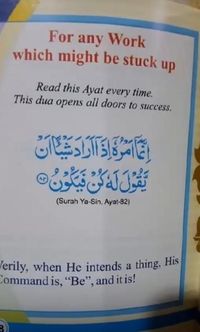 For any Work
which might be stuck up
Read this Ayat every time.
This dua opens all doors to success.
إِنَّمَا أَمْرُهُ إِذَا أَرَادَ شَيْئًا أَنْ
يَقُولَ لَهُ كُنْ فَيَكُونُ ﴿٨٢﴾
(Surah Ya-Sin, Ayat-82)
Verily, when He intends a thing, His
Command is, "Be", and it is!
8